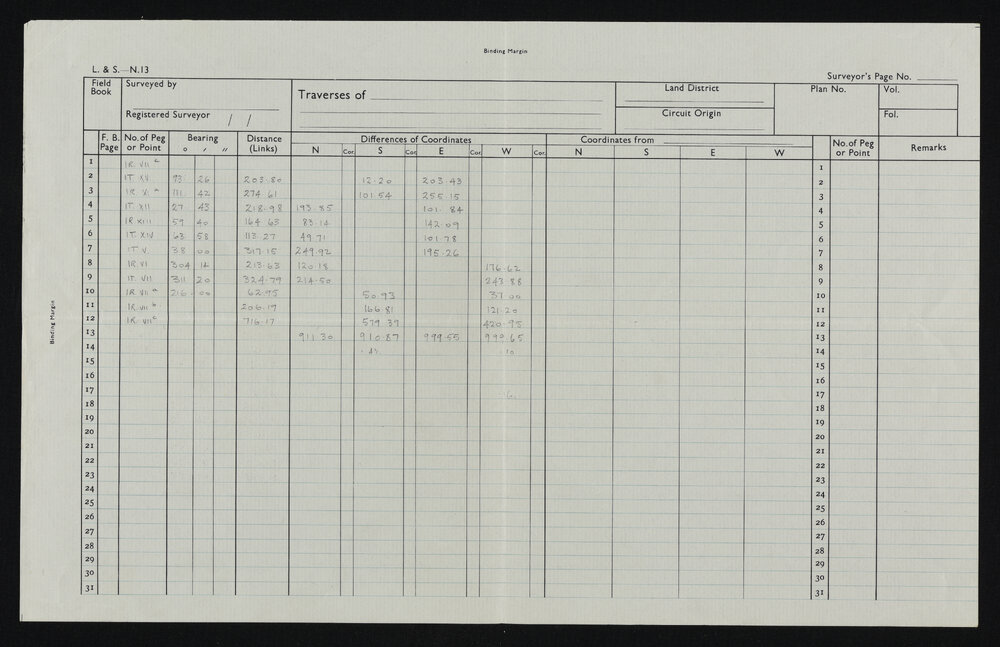 Binding Margin
L. & S.—N.13
Surveyor's Page No.
Field Book
Surveyed by
Registered Surveyor / /
Traverses of
Land District
Circuit Origin
Plan No.
Vol.
Fol.
F. B. Page No. of Peg or Point Bearing ° ′ ″ Distance (Links)
Differences of Coordinates
N Cor. S Cor. E Cor. W Cor.
Coordinates from
N S E W
No. of Peg or Point
Remarks
1 IR VII c 1
2 IT XV 93 26 203.80 12.20 203.43 2
3 IR 111 42 274 61 101.54 255.15 3
4 IT XII 27 43 218.98 193.85 101.84 4
5 IR XIII 59 40 164 63 83.14 142.09 5
6 IT XIV 63 58 113.27 49.71 101.78 6
7 IT V 38 00 317.15 249.92 195.26 7
8 IR VI 304 12 213.63 120.18 176.62 8
9 IT VII 311 20 324.79 214.50 243 88 9
10 IR VII a 216 00 62.95 50.93 37 00 10
11 IR VII b 206.17 166 81 121.20 11
12 IR VII c 716.17 579 39 420.95 12
13 911.30 910.87 999.55 999 65 13
14 .43 10 14
15 15
16 16
17 17
18 18
19 19
20 20
21 21
22 22
23 23
24 24
25 25
26 26
27 27
28 28
29 29
30 30
31 31
Binding Margin